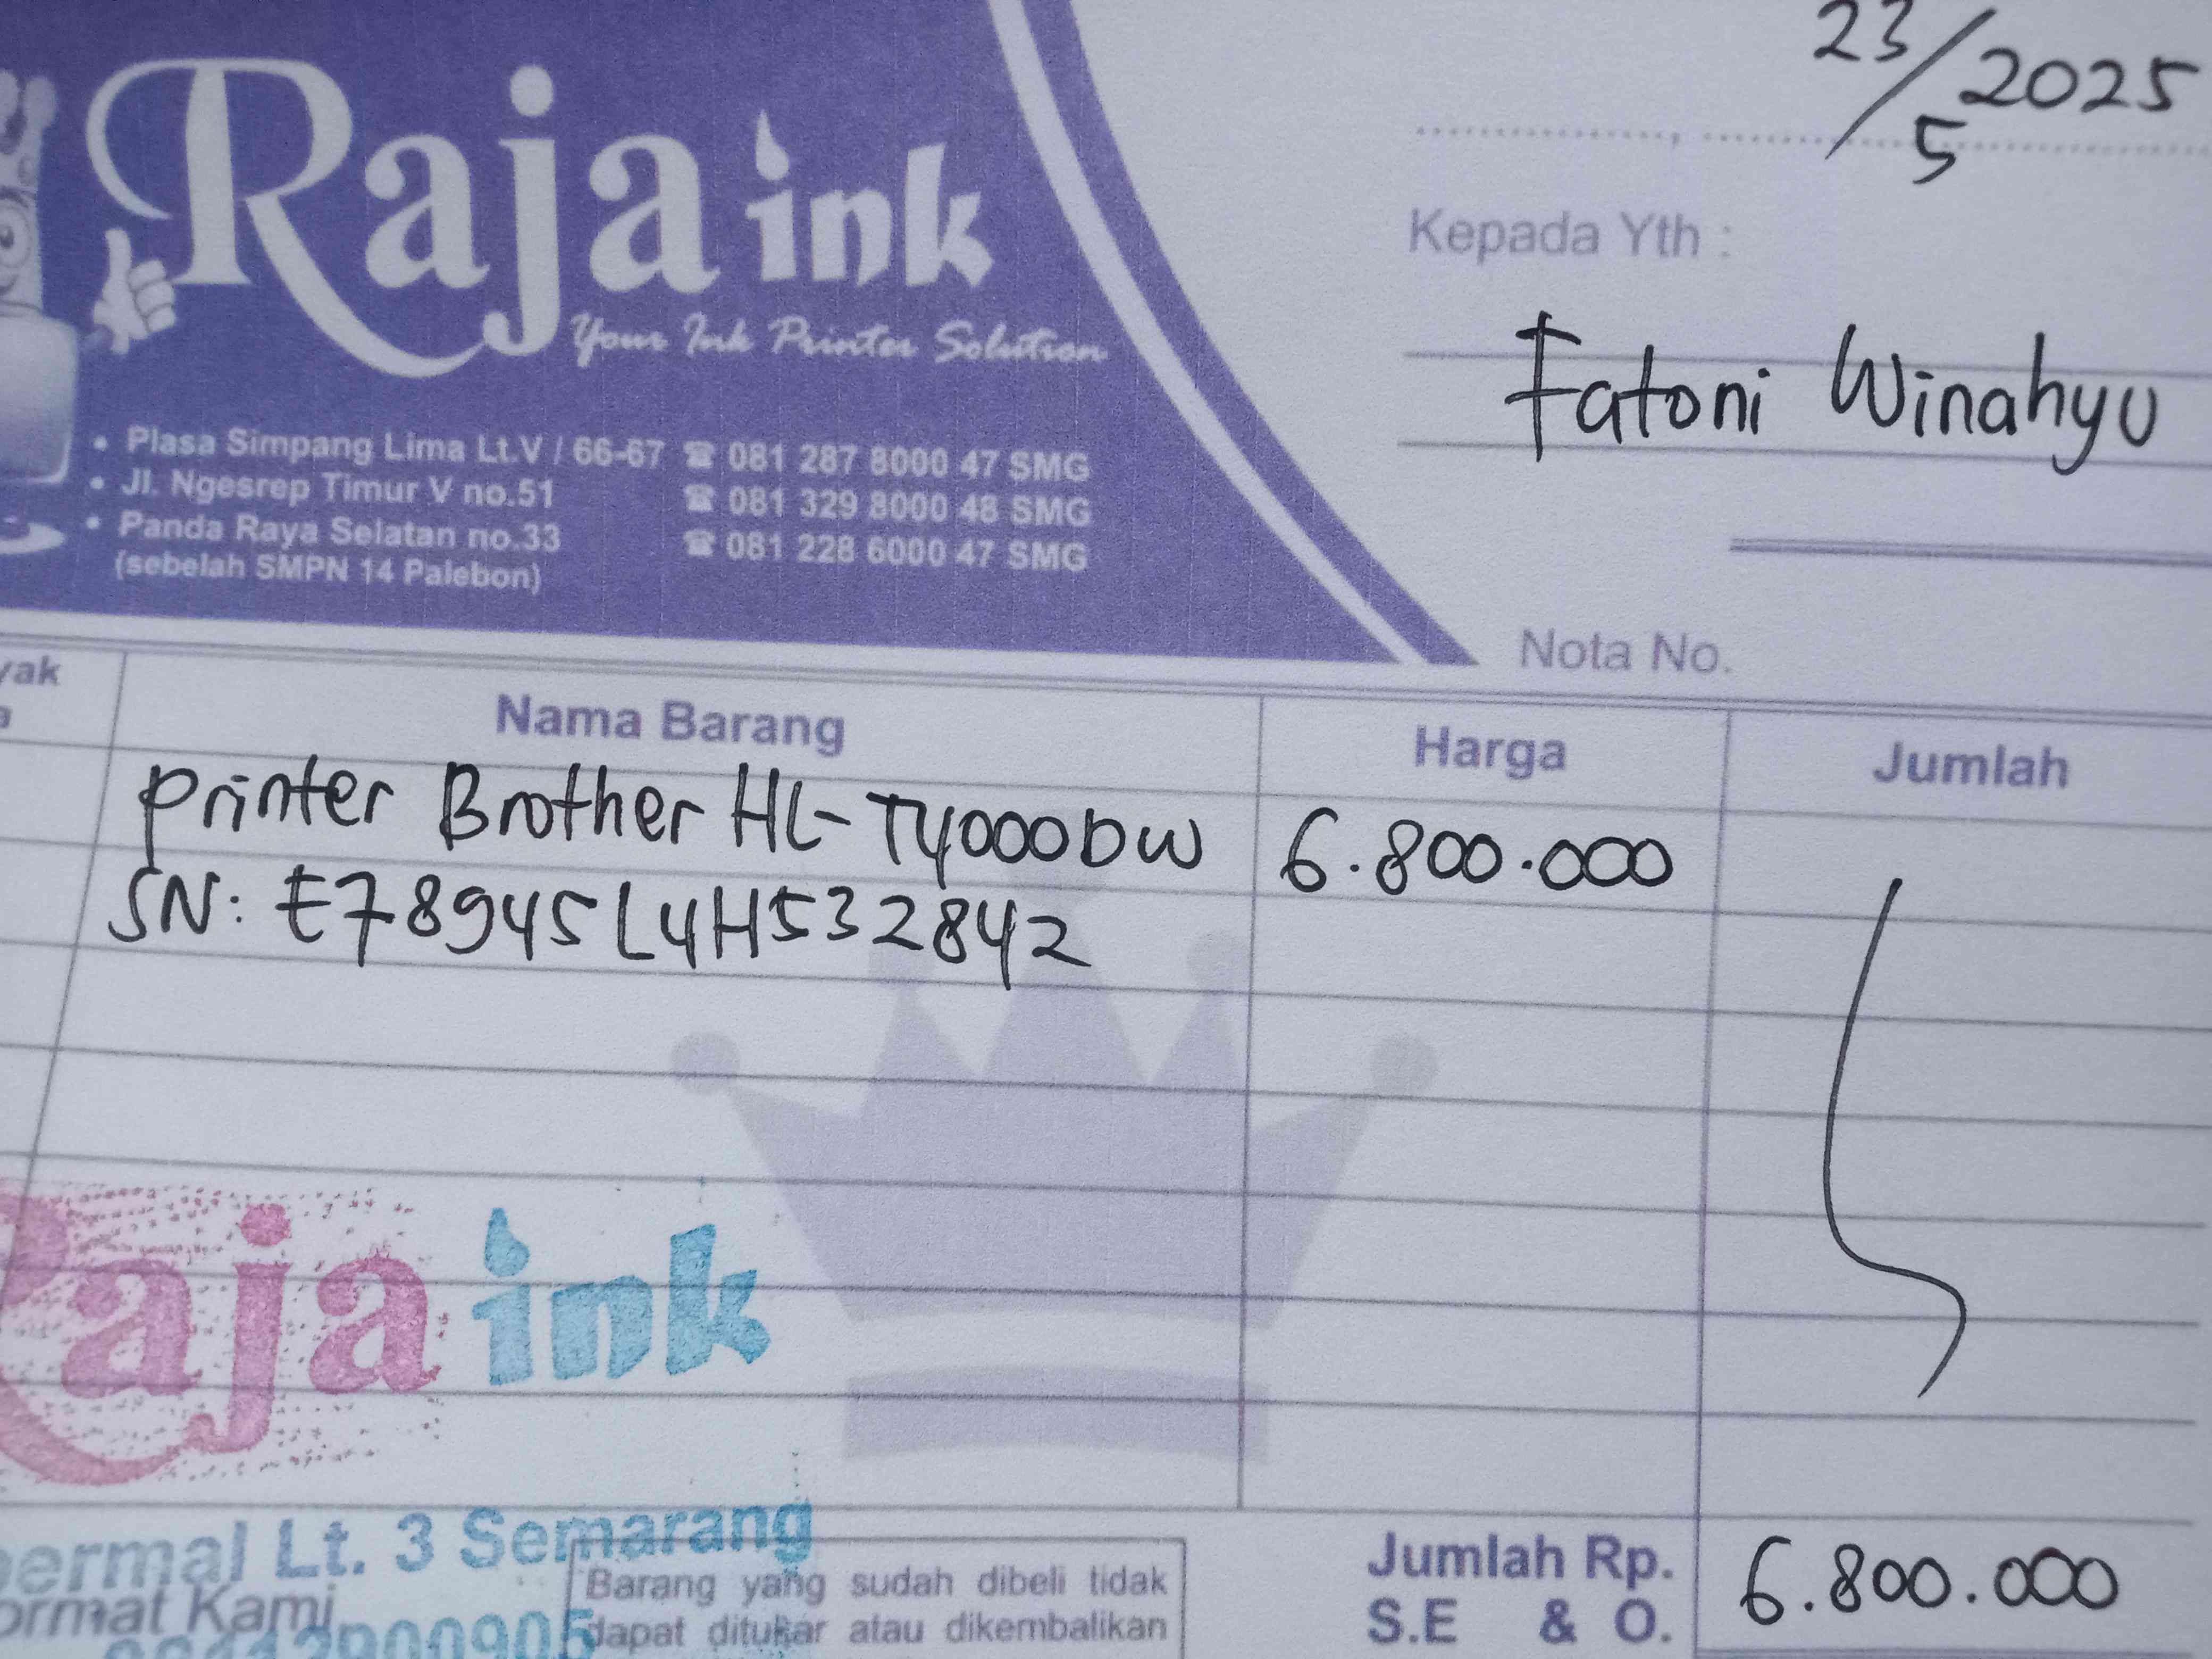 23/5 2025
Raja ink
Your Ink Printer Solution
Kepada Yth :
Fatoni Winahyu
• Plasa Simpang Lima Lt.V / 66-67 ☎ 081 287 8000 47 SMG
• Jl. Ngesrep Timur V no.51 ☎ 081 329 8000 48 SMG
• Panda Raya Selatan no.33 ☎ 081 228 6000 47 SMG
(sebelah SMPN 14 Palebon)
Nota No.
Nama Barang Harga Jumlah
Printer Brother HL-T4000DW 6.800.000
SN: E78945L4H532842
Raja ink
Lt. 3 Semarang
Kami
Barang yang sudah dibeli tidak
dapat ditukar atau dikembalikan
Jumlah Rp. 6.800.000
S.E & O.